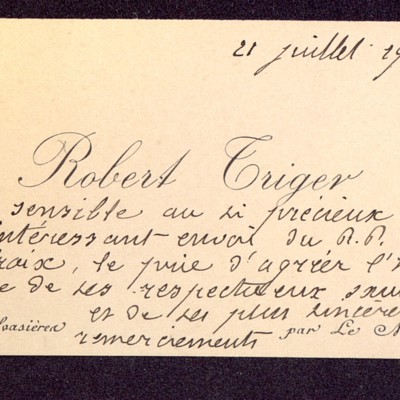 21 juillet 19
Robert Triger
sensible au si précieux
intéressant envoi du R.P.
roix, le prie d'agréer l'
e de ses respectueux
et de ses plus sincère
remerciements par Le